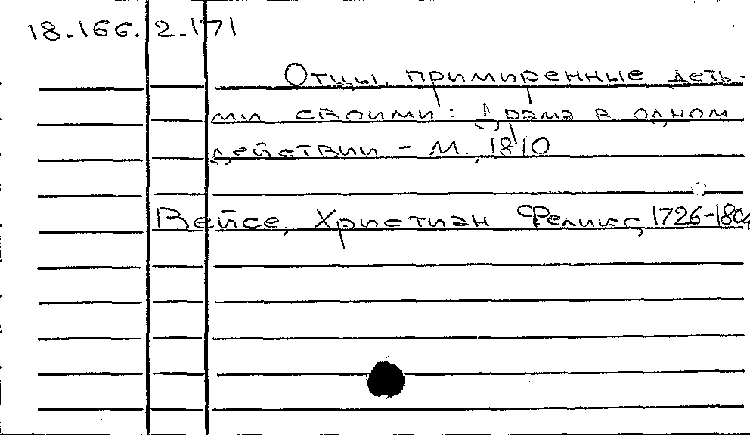 18.166.2.171
Отцы, примиренные деть-
ми своими: Драма в одном
действии - М., 1810
Вейсе, Христиан Феликс, 1726-1804